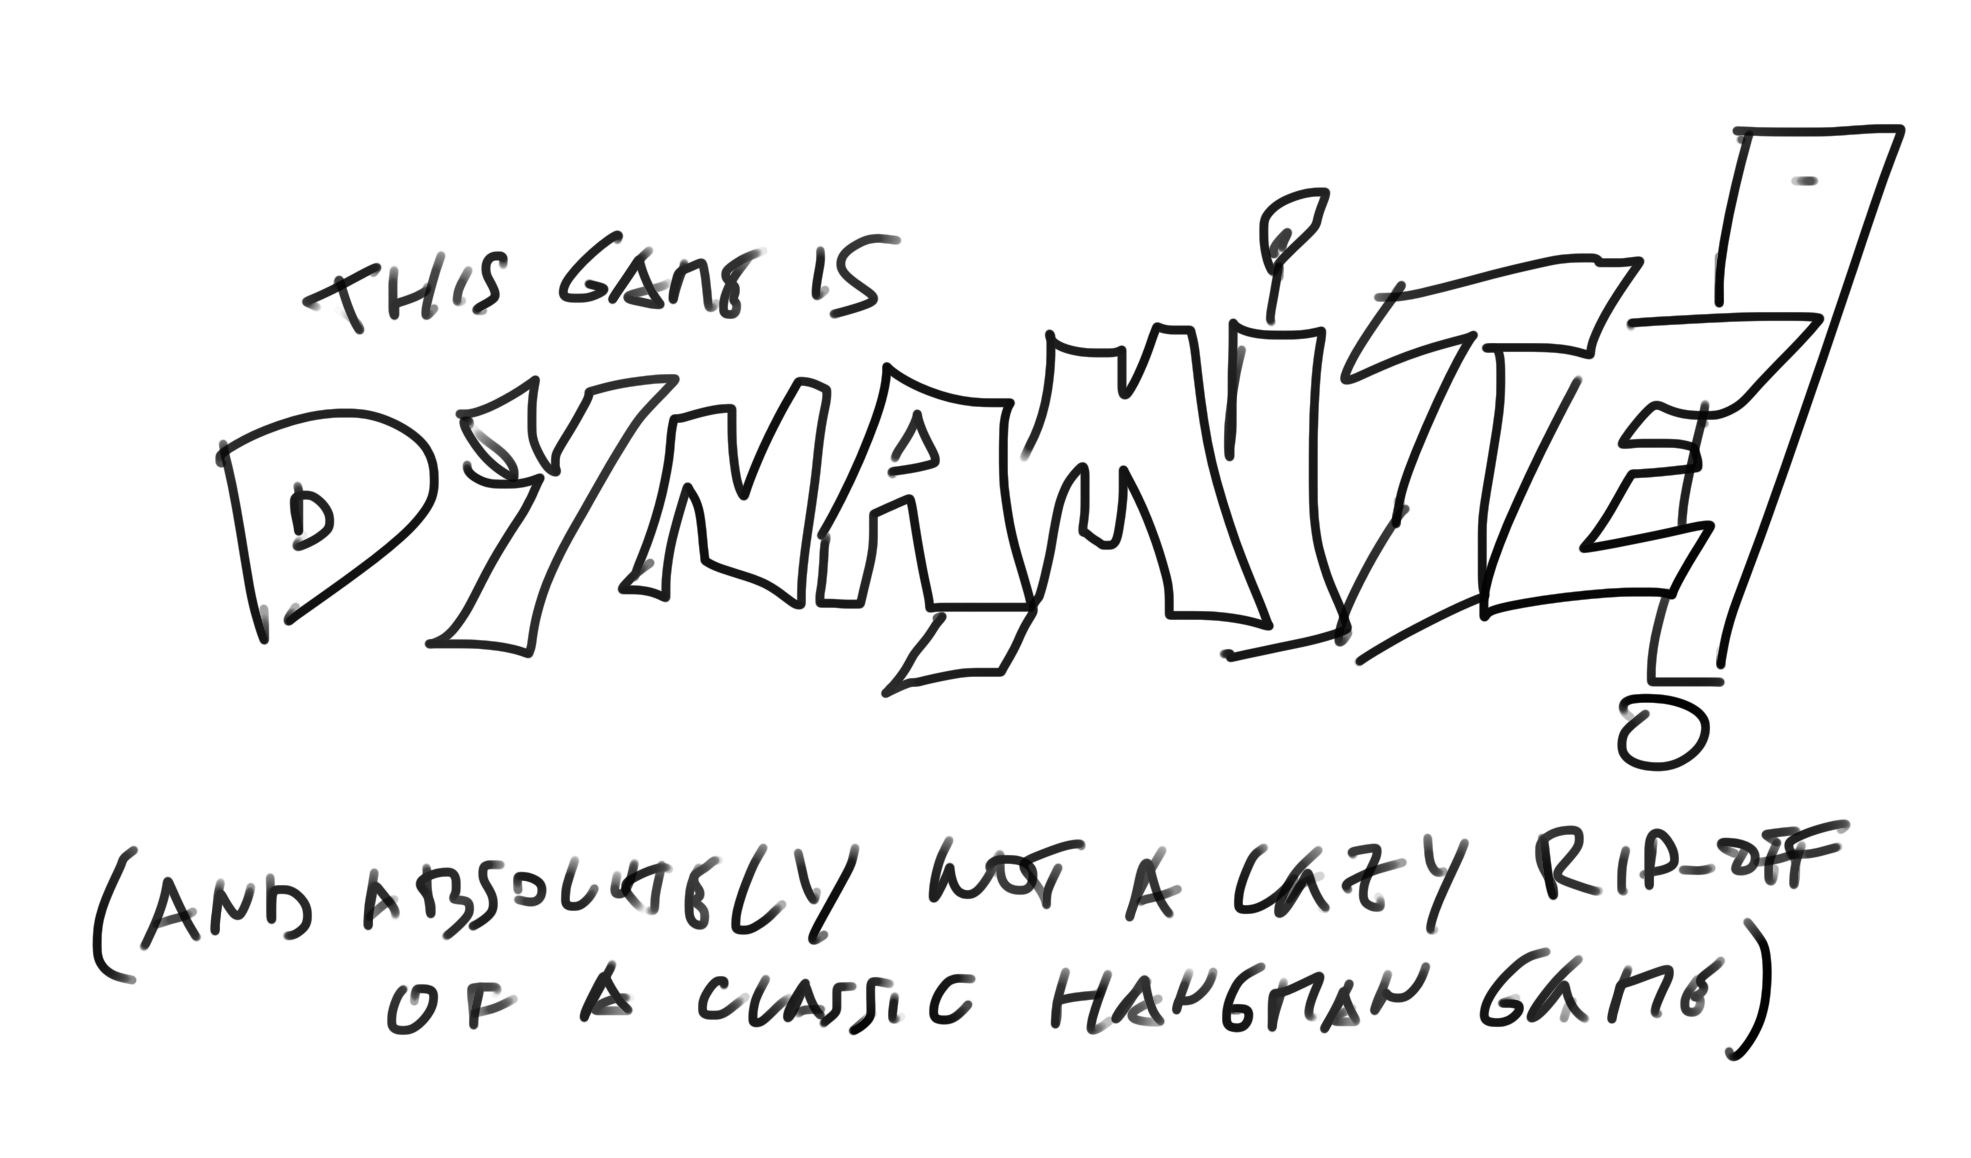 THIS GAME IS
DYNAMITE!
(AND ABSOLUTELY NOT A LAZY RIP-OFF
OF A CLASSIC HANGMAN GAME)